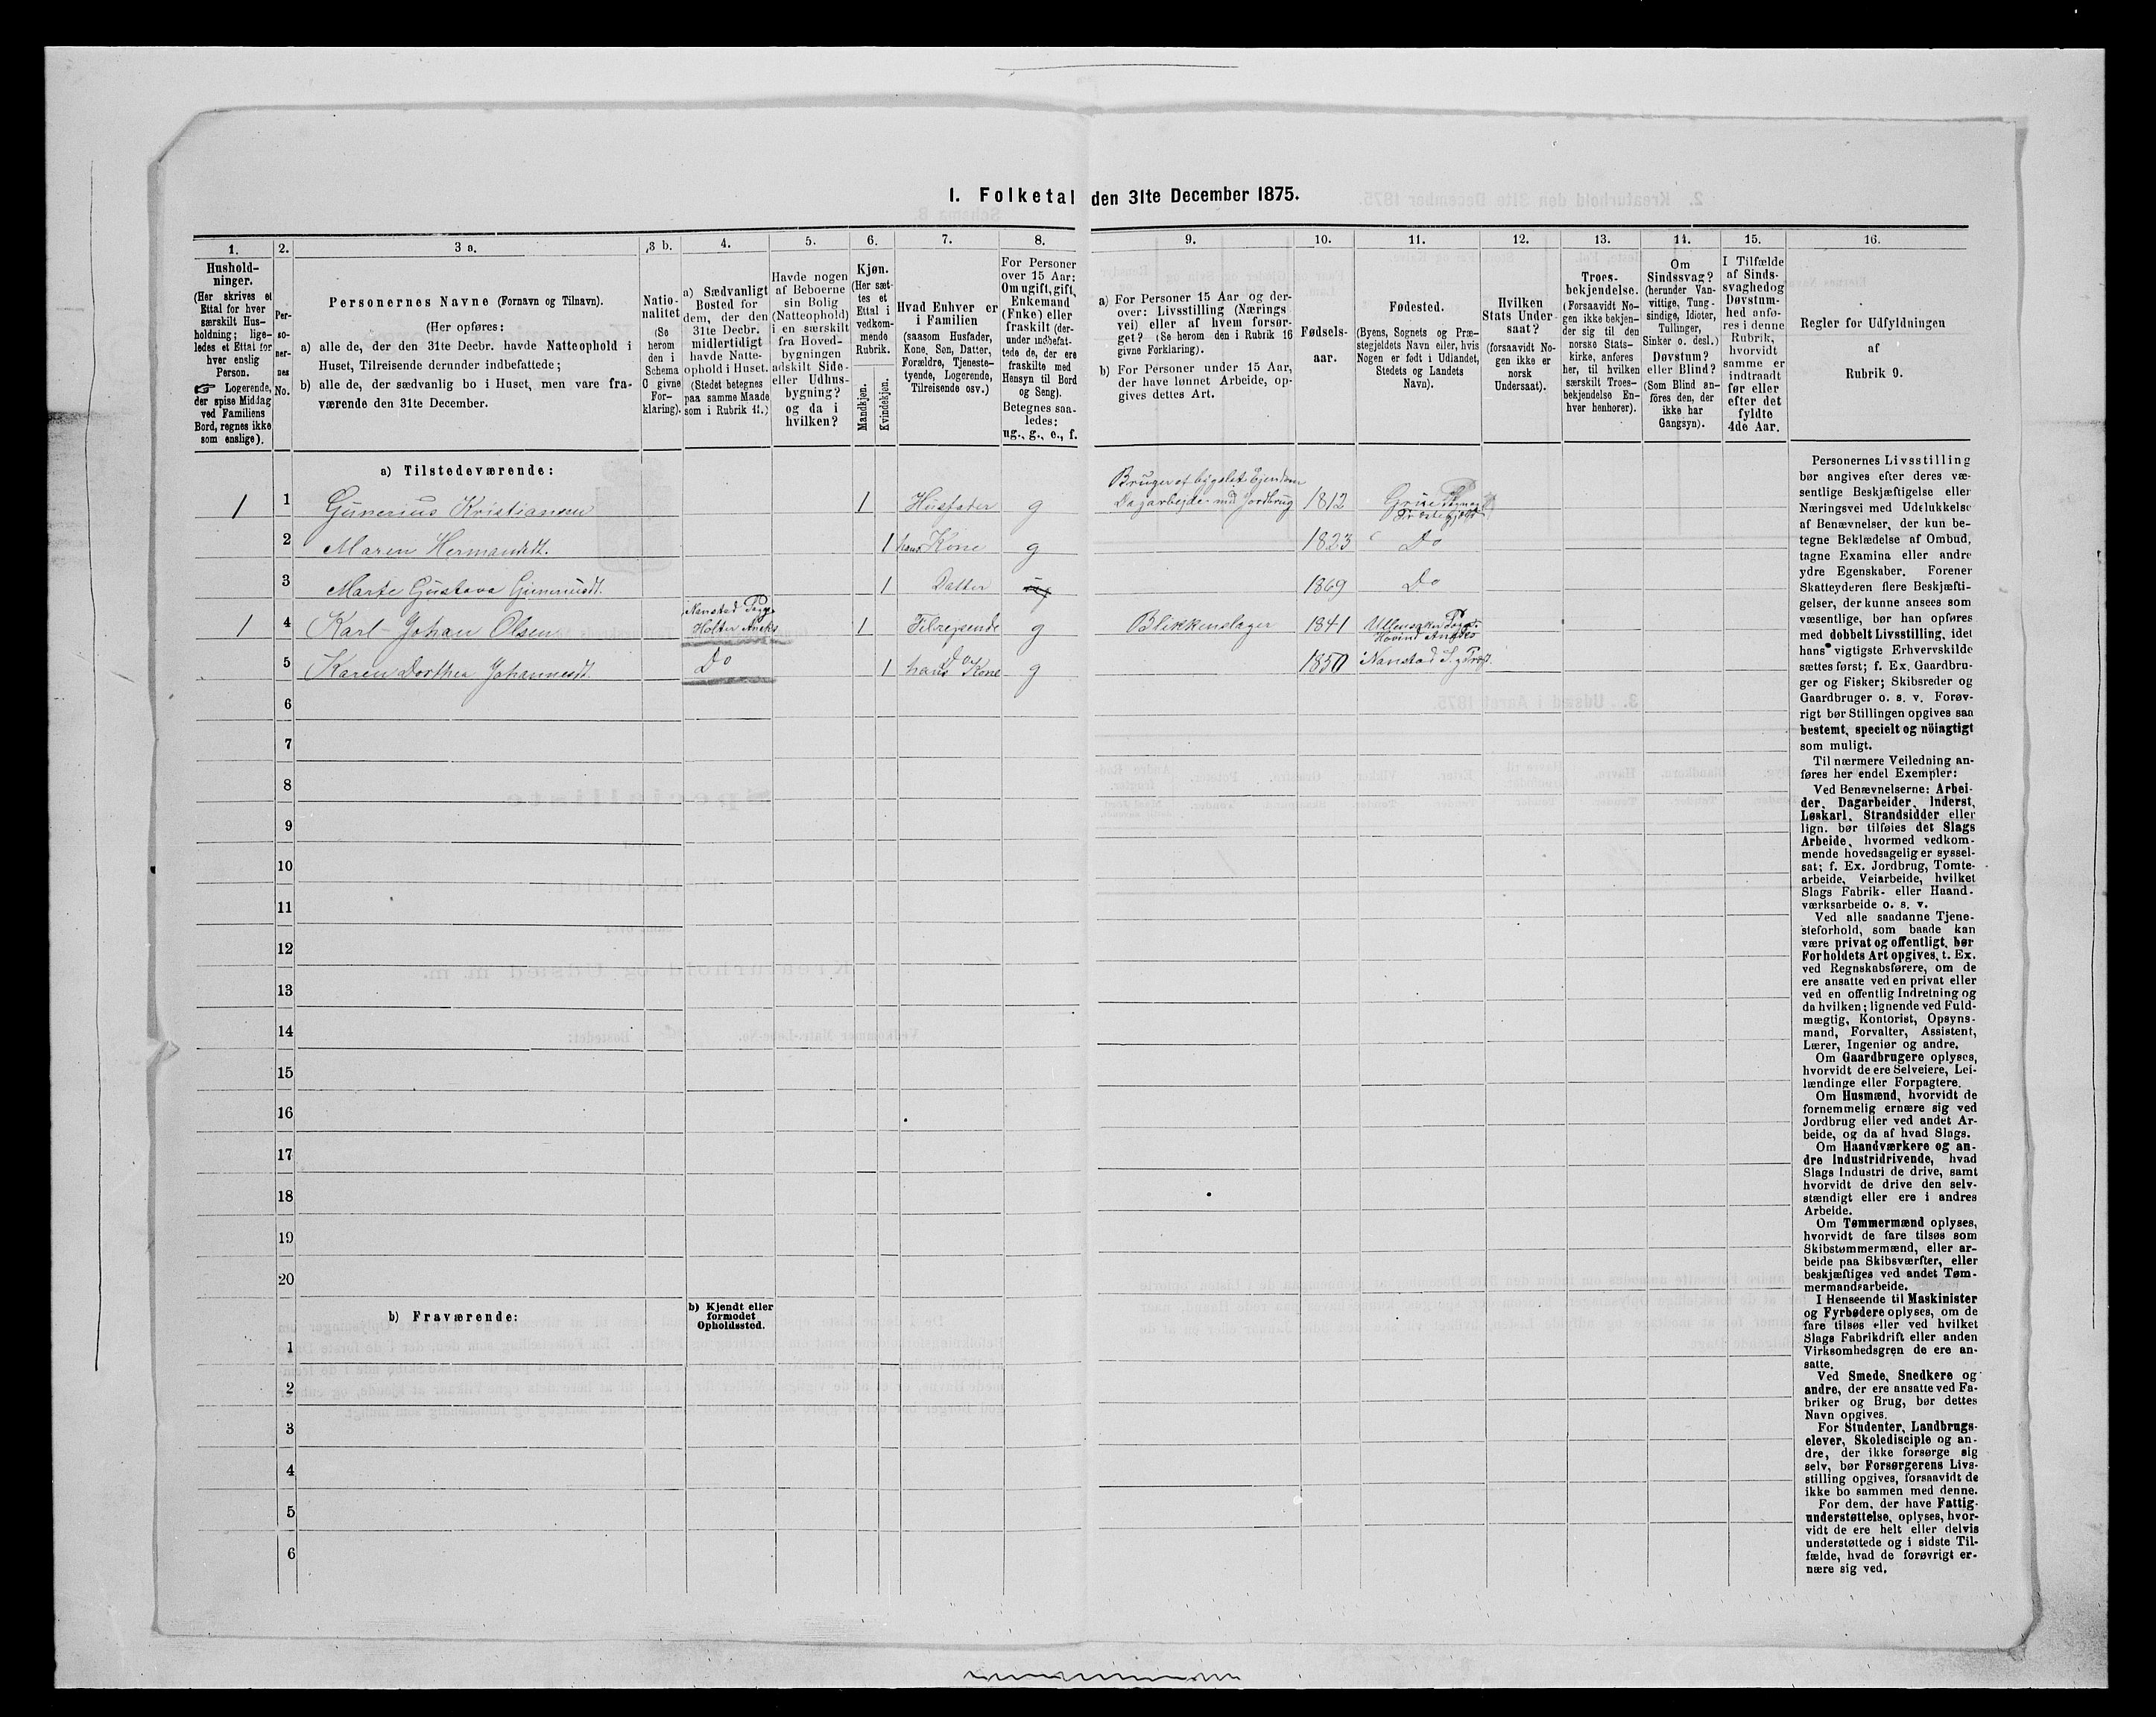 1. Folketal den 31te December 1875.
1.
Hushold-
ninger.
(Her skrives et
Ettal for hver
særskilt Hus-
holdning; lige-
ledes et Ettal for
hver enslig
Person.
☞ Logerende,
der spise Middag
ved Familiens
Bord, regnes ikke
som enslige).
2.
Per-
so-
ner-
nes
No.
3 a.
Personernes Navne (Fornavn og Tilnavn).
(Her opføres:
a) alle de, der den 31te Decbr. havde Natteophold i
Huset, Tilreisende derunder indbefattede;
b) alle de, der sædvanlig bo i Huset, men vare fra-
værende den 31te December.
3 b.
Natio-
nalitet
(Se
herom
den i
Schema
C givne
For-
klaring).
4.
a) Sædvanligt
Bosted for
dem, der den
31te Decbr.
midlertidigt
havde Natte-
ophold i Huset.
(Stedet betegnes
paa samme Maade
som i Rubrik 11.)
5.
Havde nogen
af Beboerne
sin Bolig
(Natteophold)
i en særskilt
fra Hoved-
bygningen
adskilt Side-
eller Udhus-
bygning?
og da i
hvilken?
6.
Kjøn.
(Her sæt-
tes et
Ettal i
vedkom-
mende
Rubrik.
Mandkjøn.
Kvindekjøn.
7.
Hvad Enhver er
i Familien
(saasom Husfader,
Kone, Søn, Datter,
Forældre, Tjeneste-
tyende, Logerende,
Tilreisende osv.)
8.
For Personer
over 15 Aar:
Om ugift, gift,
Enkemand
(Enke) eller
fraskilt (der-
under indbefat-
tede de, der ere
fraskilte med
Hensyn til Bord
og Seng).
Betegnes saa-
ledes:
ug., g., e., f.
9.
a) For Personer 15 Aar og der-
over: Livsstilling (Nærings
vei) eller af hvem forsør-
get? (Se herom den i Rubrik 16
givne Forklaring).
b) For Personer under 15 Aar,
der have lønnet Arbeide, op-
gives dettes Art.
10.
Fødsels-
aar.
11.
Fødested.
(Byens, Sognets og Præ-
stegjeldets Navn eller, hvis
Nogen er født i Udlandet,
Stedets og Landets
Navn).
12.
Hvilken
Stats Under-
saat?
(forsaavidt No-
gen ikke er
norsk
Undersaat).
13.
Troes-
bekjendelse.
(Forsaavidt No-
gen ikke bekjen-
der sig til den
norske Stats-
kirke, anføres
her, til hvilken
særskilt Troes-
bekjendelse En-
hver henhører).
14.
Om
Sindssvag?
(herunder Van-
vittige, Tung-
sindige, Idioter,
Tullinger,
Sinker o. desl.)
Døvstum?
eller Blind?
(Som Blind an-
føres den, der
ikke har
Gangsyn).
15.
I Tilfælde
af Sinds-
svaghed og
Døvstum-
hed anfø-
res i denne
Rubrik,
hvorvidt
samme er
indtraadt
før eller
efter det
fyldte
4de Aar.
16.
Regler for Udfyldningen
af
Rubrik 9.
a) Tilstedeværende:
1 1 Gunerius Kristiansen 1 Husfader g Bruger af bygslet Ejendom
Dagarbejde med Jordbrug 1812 Grue
2 Maren Hermansdt. 1 hans Kone g 1823 Do
3 Marte Gustava Gunneriusdt. 1 Datter ug 1869 Do
1 4 Karl Johan Olsen Nanstad
Holter Aneks 1 Tilrejsende g Blikkenslager 1841 Ullensaker
Hovind
5 Karen Dorthea Johannesdt. Do 1 do
hans Kone g 1850 Nanstad
6
7
8
9
10
11
12
13
14
15
16
17
18
19
20
b) Fraværende:
b) Kjendt eller
formodet
Opholdssted.
1
2
3
4
5
6
Personernes Livsstilling
bør angives efter deres væ-
sentlige Beskjæftigelse eller
Næringsvei med Udelukkelse
af Benævnelser, der kun be-
tegne Beklædelse af Ombud,
tagne Examina eller andre
ydre Egenskaber. Forener
Skatteyderen flere Beskjæfti-
gelser, der kunne ansees som
væsentlige, bør han opføres
med dobbelt Livsstilling, idet
hans vigtigste Erhvervskilde
sættes først; f. Ex. Gaardbru-
ger og Fisker; Skibsreder og
Gaardbruger o. s. v. Forøv-
rigt bør Stillingen opgives saa
bestemt, specielt og nöiagtigt
som muligt.
Til nærmere Veiledning an-
føres her endel Exempler:
Ved Benævnelserne: Arbei-
der, Dagarbeider, Inderst,
Løskarl, Strandsidder eller
lign. bør tilføies det Slags
Arbeide, hvormed vedkom-
mende hovedsagelig er syssel-
sat; f. Ex. Jordbrug, Tomte-
arbeide, Veiarbeide, hvilket
Slags Fabrik- eller Haand-
værksarbeide o. s. v.
Ved alle saadanne Tjene-
steforhold, som baade kan
være privat og offentligt, bør
Forholdets Art opgives, t. Ex.
ved Regnskabsførere, om de
ere ansatte ved en privat eller
ved en offentlig Indretning og
da hvilken; lignende ved Fuld-
mægtig, Kontorist, Opsyns-
mand, Forvalter, Assistent,
Lærer, Ingeniør og andre.
Om Gaardbrugere oplyses,
hvorvidt de ere Selveiere, Lei-
lændinge eller Forpagtere.
Om Husmænd, hvorvidt de
fornemmelig ernære sig ved
Jordbrug eller ved andet Ar-
beide, og da af hvad Slags.
Om Haandværkere og an-
dre Industridrivende, hvad
Slags Industri de drive, samt
hvorvidt de drive den selv-
stændigt eller ere i andres
Arbeide.
Om Tømmermænd oplyses,
hvorvidt de fare tilsøs som
Skibstømmermænd, eller ar-
beide paa Skibsværfter, eller
beskjæftiges ved andet Tøm-
mermandsarbeide.
I Henseende til Maskinister
og Fyrbødere oplyses, om de
fare tilsøs eller ved hvilket
Slags Fabrikdrift eller anden
Virksomhedsgren de ere an-
satte.
Ved Smede, Snedkere og
andre, der ere ansatte ved Fa-
briker og Brug, bør dettes
Navn opgives.
For Studenter, Landbrugs-
elever, Skoledisciple og an-
dre, der ikke forsørge sig
selv, bør Forsørgerens Livs-
stilling opgives, forsaavidt de
ikke bo sammen med denne.
For dem, der have Fattig-
understøttelse, oplyses, hvor-
vidt de ere helt eller delvis
understøttede og i sidste Til-
fælde, hvad de forøvrigt er-
nære sig ved.